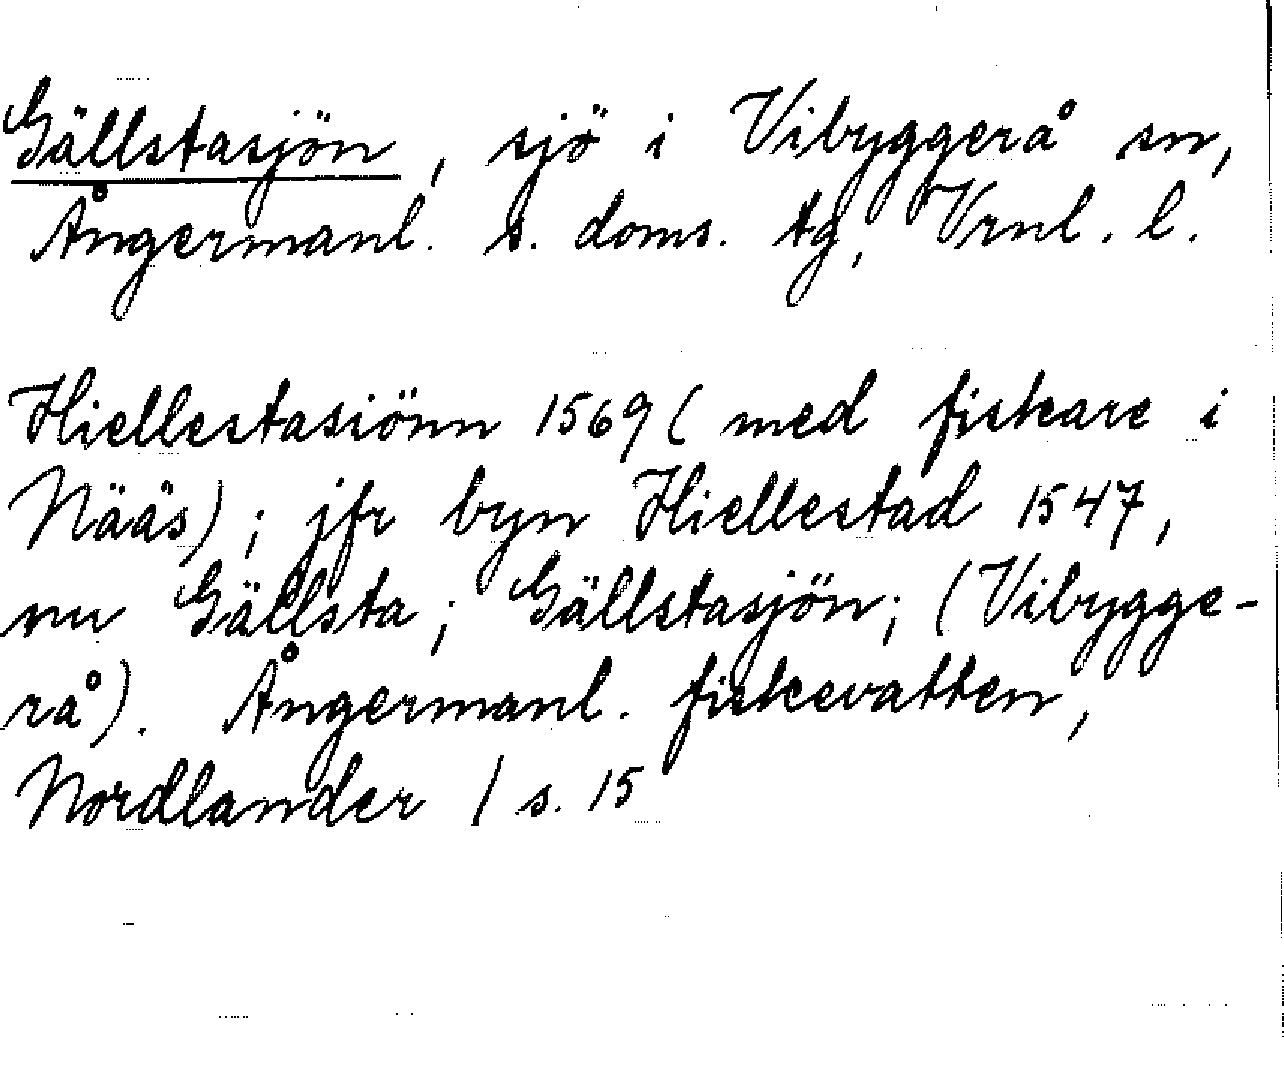 Gällstasjön, sjö i Vibyggerå sn,
Ångermanl. s. doms. tg, Vrnl. l.
Hiellestasiönn 1569 ( med fiskare i
Nääs) ; jfr byn Hiellestad 1547,
nu Gällsta ; Gällstasjön ; (Vibygge-
rå). Ångermanl. fiskevatten,
Nordlander / s. 15